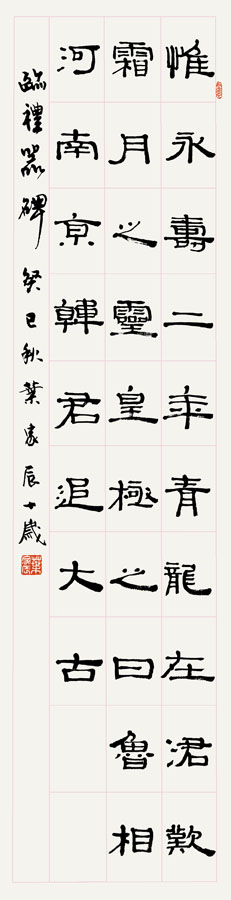 惟永壽二年青龍在涒歎
霜月之靈皇極之日魯相
河南京韓君追大古
臨禮器碑癸巳秋葉家辰十歲